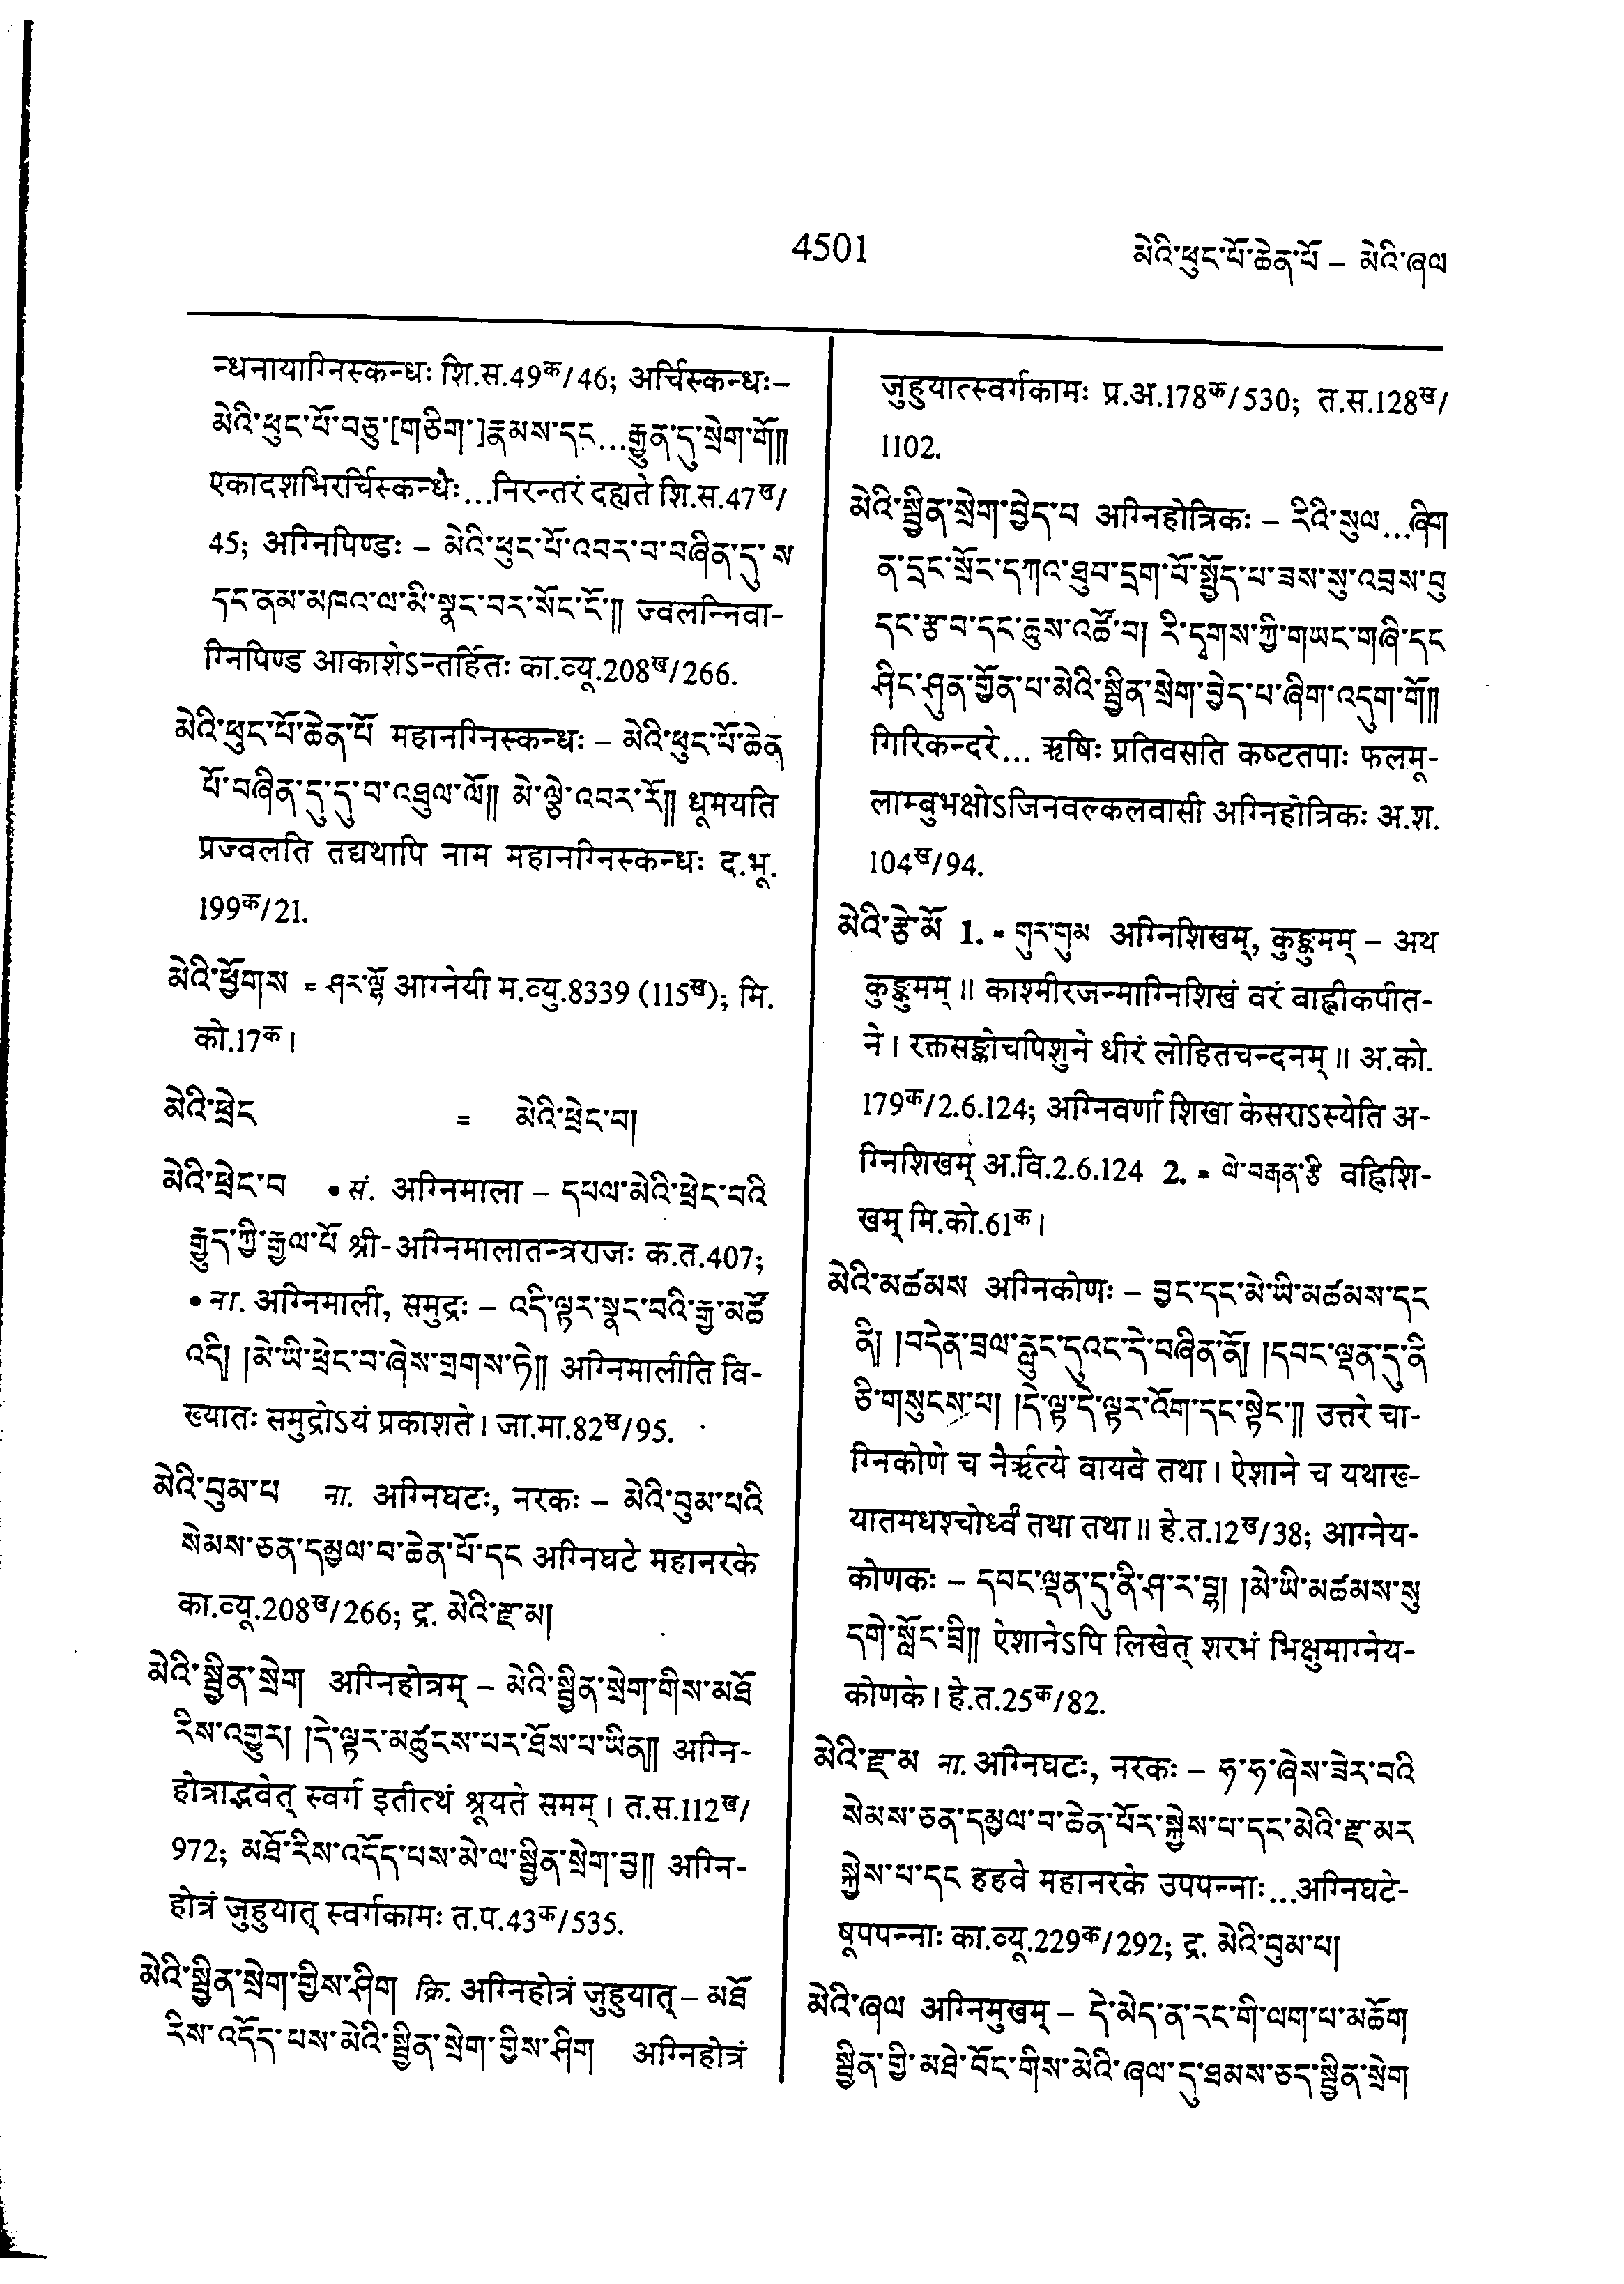 4501
མེའི་ཕུང་པོ་ཆེན་པོ – མེའི་ཞལ
न्धनायाग्निस्कन्धः शि.स.49क/46; अर्चिस्कन्धः–
མེའི་ཕུང་པོ་བཅུ་[གཅིག་]རྣམས་དང...རྒྱུན་དུ་སྲེག་གོ༎
एकादशभिरर्चिस्कन्धैः...निरन्तरं दह्यते शि.स.47ख/
45; अग्निपिण्डः – མེའི་ཕུང་པོ་འབར་བ་བཞིན་དུ་ས
དང་ནམ་མཁའ་ལ་མི་སྣང་བར་སོང་ངོ་༎ ज्वलन्निवा-
ग्निपिण्ड आकाशेऽन्तर्हितः का.व्यू.208ख/266.
མེའི་ཕུང་པོ་ཆེན་པོ महानग्निस्कन्धः – མེའི་ཕུང་པོ་ཆེན
པོ་བཞིན་དུ་དུ་བ་འཕྲུལ་ལོ༎ མེ་ལྕེ་འབར་རོ༎ धूमयति
प्रज्वलति तद्यथापि नाम महानग्निस्कन्धः द.भू.
199क/21.
མེའི་ཕྱོགས = ཤར་ལྷོ आग्नेयी म.व्यु.8339 (115ख); मि.
को.17क।
མེའི་ཕྲེང = མེའི་ཕྲེང་བ།
མེའི་ཕྲེང་བ • सं. अग्निमाला – དཔལ་མེའི་ཕྲེང་བའི
རྒྱུད་ཀྱི་རྒྱལ་པོ श्री-अग्निमालातन्त्रराजः क.त.407;
• ना. अग्निमाली, समुद्रः – འདི་ལྟར་སྣང་བའི་རྒྱ་མཚོ
འདི། །མེ་ཡི་ཕྲེང་བ་ཞེས་གྲགས་ཏེ༎ अग्निमालीति वि-
ख्यातः समुद्रोऽयं प्रकाशते। जा.मा.82ख/95.
མེའི་བུམ་པ ना. अग्निघटः, नरकः – མེའི་བུམ་པའི
སེམས་ཅན་དམྱལ་བ་ཆེན་པོ་དང अग्निघटे महानरके
का.व्यू.208ख/266; द्र. མེའི་རྫ་མ།
མེའི་སྦྱིན་སྲེག अग्निहोत्रम् – མེའི་སྦྱིན་སྲེག་གིས་མཐོ
རིས་འགྱུར། །དེ་ལྟར་མཚུངས་པར་ཐོས་པ་ཡིན༎ अग्नि-
होत्राद्भवेत् स्वर्ग इतीत्थं श्रूयते समम्। त.स.112ख/
972; མཐོ་རིས་འདོད་པས་མེ་ལ་སྦྱིན་སྲེག་བྱ༎ अग्नि-
होत्रं जुहुयात् स्वर्गकामः त.प.43क/535.
མེའི་སྦྱིན་སྲེག་གྱིས་ཤིག क्रि. अग्निहोत्रं जुहुयात् – མཐོ
རིས་འདོད་པས་མེའི་སྦྱིན་སྲེག་གྱིས་ཤིག अग्निहोत्रं
जुहुयात्स्वर्गकामः प्र.अ.178क/530; त.स.128ख/
1102.
མེའི་སྦྱིན་སྲེག་བྱེད་པ अग्निहोत्रिकः – རིའི་སུལ...ཞིག
ན་དྲང་སྲོང་དཀའ་ཐུབ་དྲག་པོ་སྤྱོད་པ་ཟས་སུ་འབྲས་བུ
དང་རྩ་བ་དང་ཆུས་འཚོ་བ། རི་དྭགས་ཀྱི་གཡང་གཞི་དང
ཤིང་ཤུན་གྱོན་པ་མེའི་སྦྱིན་སྲེག་བྱེད་པ་ཞིག་འདུག་གོ༎
गिरिकन्दरे... ऋषिः प्रतिवसति कष्टतपाः फलमू-
लाम्बुभक्षोऽजिनवल्कलवासी अग्निहोत्रिकः अ.श.
104ख/94.
མེའི་རྩེ་མོ 1. = གུར་གུམ अग्निशिखम्, कुङ्कुमम् – अथ
कुङ्कुमम्॥ काश्मीरजन्माग्निशिखं वरं बाह्लीकपीत-
ने। रक्तसङ्कोचपिशुने धीरं लोहितचन्दनम्॥ अ.को.
179क/2.6.124; अग्निवर्णा शिखा केसराऽस्येति अ-
ग्निशिखम् अ.वि.2.6.124 2. = ལེ་བརྒན་རྩི वह्निशि-
खम् मि.को.61क।
མེའི་མཚམས अग्निकोणः – བྱང་དང་མེ་ཡི་མཚམས་དང
ནི། །བདེན་བྲལ་རླུང་དུའང་དེ་བཞིན་ནོ། །དབང་ལྡན་དུ་ནི
ཅི་གསུངས་པ། །དེ་ལྟ་དེ་ལྟར་འོག་དང་སྟེང་༎ उत्तरे चा-
ग्निकोणे च नैर्ऋत्ये वायवे तथा। ऐशाने च यथाख्-
यातमधश्चोर्ध्वं तथा तथा॥ हे.त.12ख/38; आग्नेय-
कोणकः – དབང་ལྡན་དུ་ནི་ཤ་ར་བྷ། །མེ་ཡི་མཚམས་སུ
དགེ་སློང་བྲི༎ ऐशानेऽपि लिखेत् शरभं भिक्षुमाग्नेय-
कोणके। हे.त.25क/82.
མེའི་རྫ་མ ना. अग्निघटः, नरकः – ཧ་ཧ་ཞེས་ཟེར་བའི
སེམས་ཅན་དམྱལ་བ་ཆེན་པོར་སྐྱེས་པ་དང་མེའི་རྫ་མར
སྐྱེས་པ་དང हहवे महानरके उपपन्नाः...अग्निघटे-
षूपपन्नाः का.व्यू.229क/292; द्र. མེའི་བུམ་པ།
མེའི་ཞལ अग्निमुखम् – དེ་མེད་ན་རང་གི་ལག་པ་མཆོག
སྦྱིན་གྱི་མཐེ་བོང་གིས་མེའི་ཞལ་དུ་ཐམས་ཅད་སྦྱིན་སྲེག